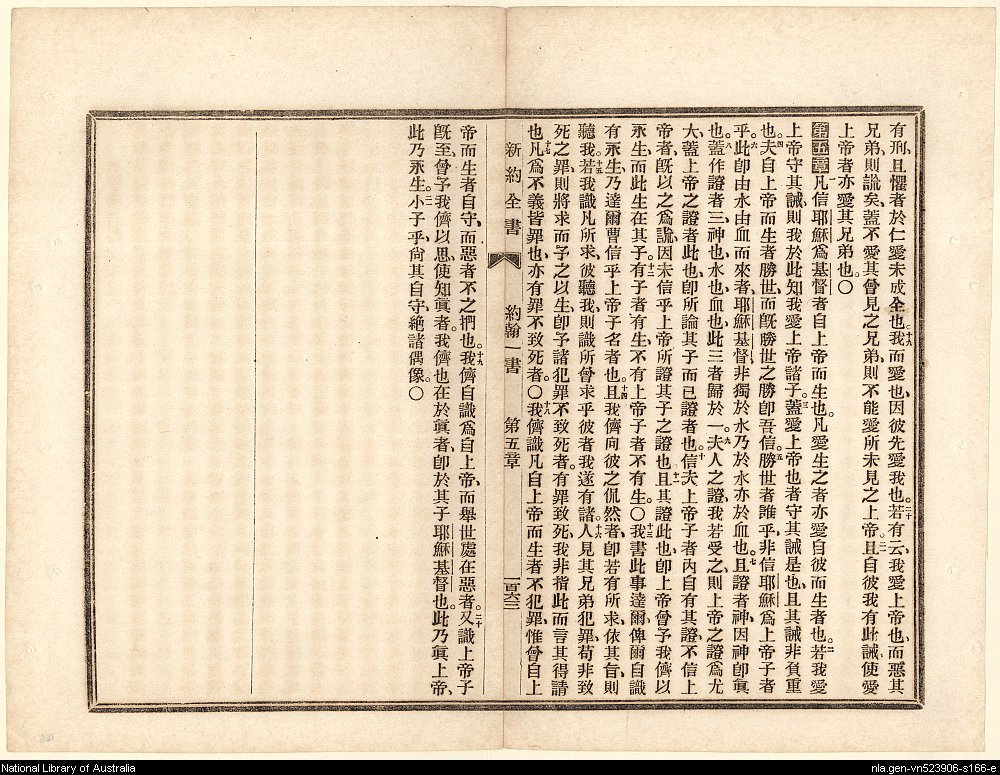 有刑、且懼者於仁愛未成全也。十九我而愛也、因彼先愛我也。二十若有云、我愛上帝也、而惡其
兄弟、則謊矣、蓋不愛其曾見之兄弟、則不能愛所未見之上帝。二一且自彼我有此誡、使愛
上帝者亦愛其兄弟也。〇
第五章一凡信耶穌爲基督者自上帝而生也。凡愛生之者亦愛自彼而生者也。二若我愛
上帝守其誡、則我於此知我愛上帝諸子。三蓋愛上帝也者守其誡是也、且其誡非負重
也。四夫自上帝而生者勝世、而旣勝世之勝卽吾信。五勝世者誰乎、非信耶穌爲上帝子者
乎。六此卽由水由血而來者、耶穌基督、非獨於水、乃於水亦於血也。七且證者神、因神卽眞
也。八蓋作證者三、神也、水也、血也、此三者歸於一。九夫人之證我若受之、則上帝之證爲尤
大、蓋上帝之證者此也、卽所論其子而已證者也。十信夫上帝子者內自有其證、不信上
帝者、旣以之爲謊、因未信乎上帝所證其子之證也。十一且其證此也、卽上帝曾予我儕以
永生、而此生在其子。十二有子者有生、不有上帝子者不有生。〇十三我書此事達爾、俾爾自識
有永生、乃達爾曹信乎上帝子名者也。十四且我儕向彼之侃然者、卽若有所求、依其旨、則
聽我。十五若我識凡所求、彼聽我、則識所曾求乎彼者我遂有諸。十六人見其兄弟犯罪、苟非致
死之罪、則將求而予之以生、卽予諸犯罪不致死者。有罪致死、我非指此而言其得請
也。十七凡爲不義皆罪也、亦有罪不致死者。〇十八我儕識凡自上帝而生者不犯罪、惟曾自上
新約全書　約翰一書　第五章　一百六三
帝而生者自守、而惡者不之捫也。十九我儕自識爲自上帝、而舉世處在惡者。二十又識上帝子
旣至、曾予我儕以思、使知眞者。我儕也在於眞者、卽於其子耶穌基督也。此乃眞上帝、
此乃永生。二一小子乎、尙其自守、絶諸偶像。〇
National Library of Australia
nla.gen-vn523906-s166-e